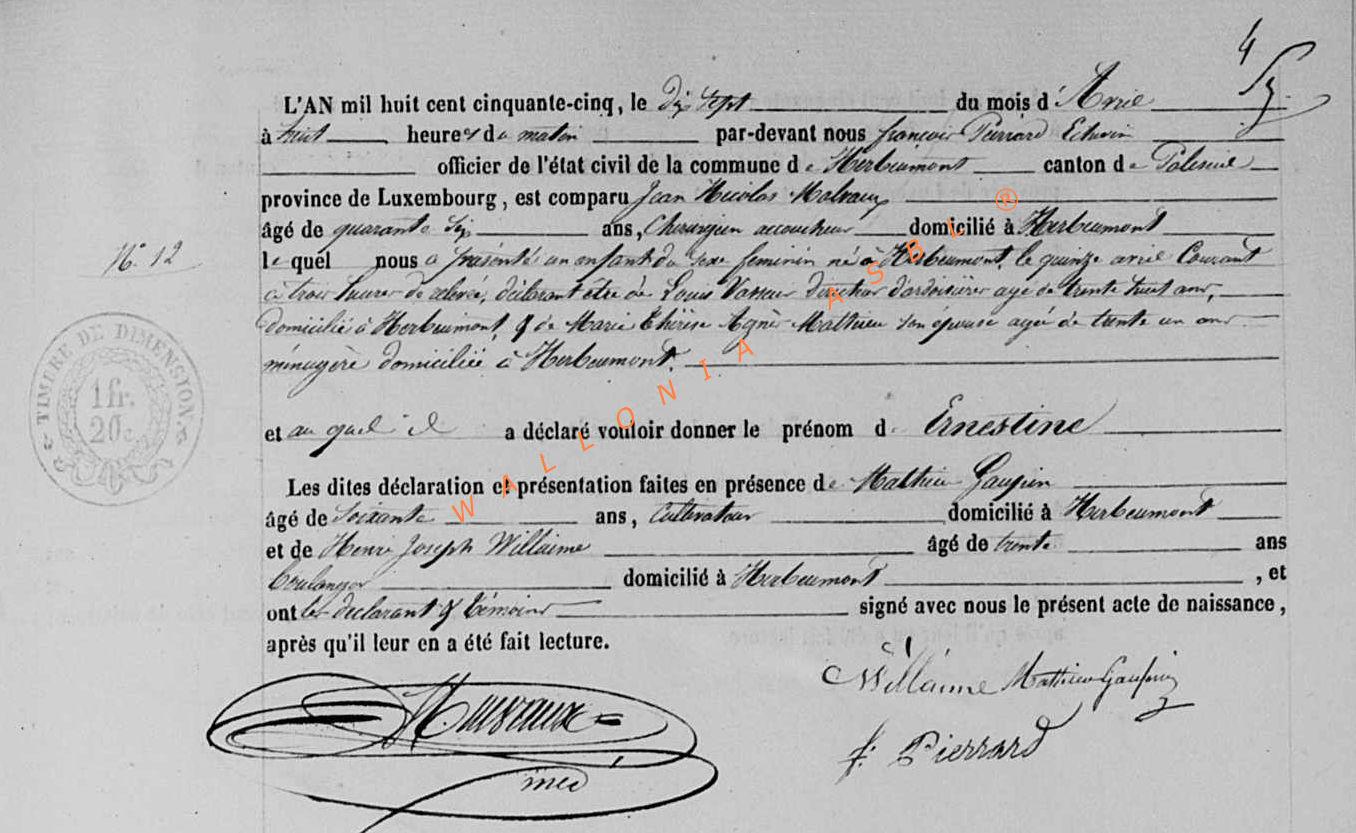 4
L'AN mil huit cent cinquante-cinq, le dix sept du mois d'Avril
à huit heures du matin par-devant nous françois Pierrard Echevin
officier de l'état civil de la commune de Herbeumont canton de Paliseul
province de Luxembourg, est comparu Jean Nicolas
âgé de quarante six ans, Chirurgien accoucheur domicilié à Herbeumont
N° 12
lequél nous a présenté un enfant du sexe feminin né à Herbeumont, le quinze avril Courant
à trois heures de relevée, déclarant etre de Louis Vasseur directeur d'ardoisière agé de trente huit ans,
domicilié à Herbeumont, & de Marie Thérèse Agnès Mathieu son épouse agée de trente un ans
ménagère domiciliée à Herbeumont.
TIMBRE DE DIMENSION.
1 fr.
20 c.
et au quel il a déclaré vouloir donner le prénom d Ernestine
Les dites déclaration et présentation faites en présence de Mathieu Gaupin
âgé de Soixante ans, Cultivateur domicilié à Herbeumont
et de Henri Joseph Willaime âgé de trente ans
boulanger domicilié à Herbeumont, et
ont les declarant & témoins signé avec nous le présent acte de naissance,
après qu'il leur en a été fait lecture.
Willaime Mathieu Gaupin
f. Pierrard
WALLONIA ASBL ®